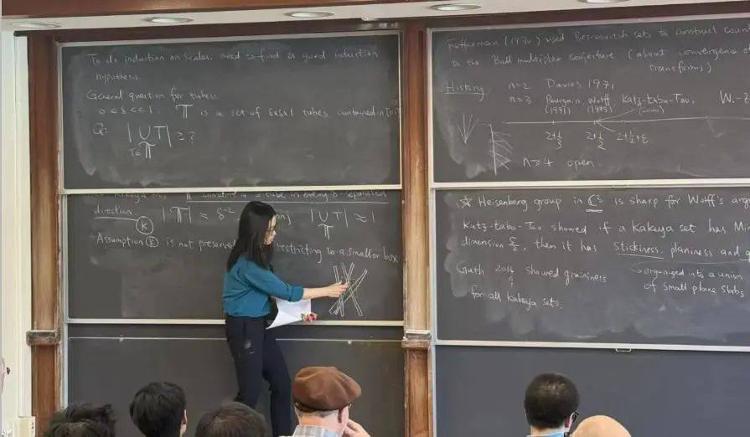 To do induction on scales, need to find a good induction
hypothesis.
General question for tubes:
0 < δ << 1. 𝕋 is a set of δxδx1 tubes contained in
Q: |∪T| ≥ ?
T∈𝕋
direction (K) |𝕋| ≈ δ⁻² |∪T| ≈ 1
𝕋
Assumption (K) is not restricting to a smaller box
Fefferman used Besicovitch sets to construct
to the Ball multiplier conjecture (about convergence of
transforms)
History n=2 Davies 1971
n=3 Bourgain Wolff Katz-Łaba-Tao, W.-Z
(1991) (1995)
2+1/3 2+1/2 2+1/2+ε
n≥4 open.
☆ Heisenberg group in ℂ³ is sharp for Wolff's
Katz-Łaba-Tao showed if a Kakeya set has
dimension 5/2, then it has stickiness, planiness and
Guth showed graininess → organized into a union
for all Kakeya sets. of small plane slabs